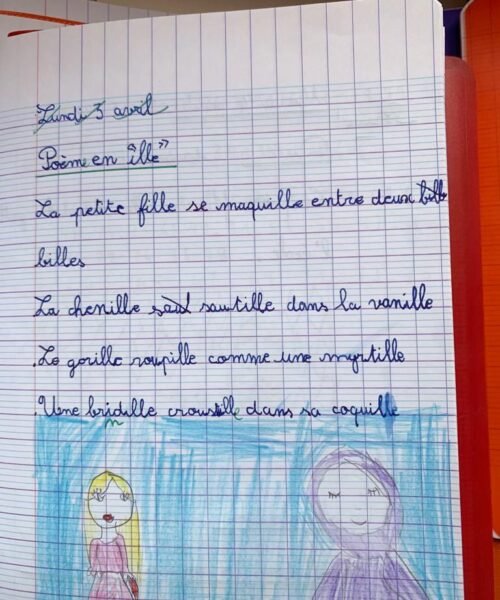 Lundi 3 avril
Poème en "ille"
La petite fille se maquille entre deux
billes
La chenille sautille dans la vanille
.Le gorille roupille comme une myrtille
.Une brindille croustille dans sa coquille